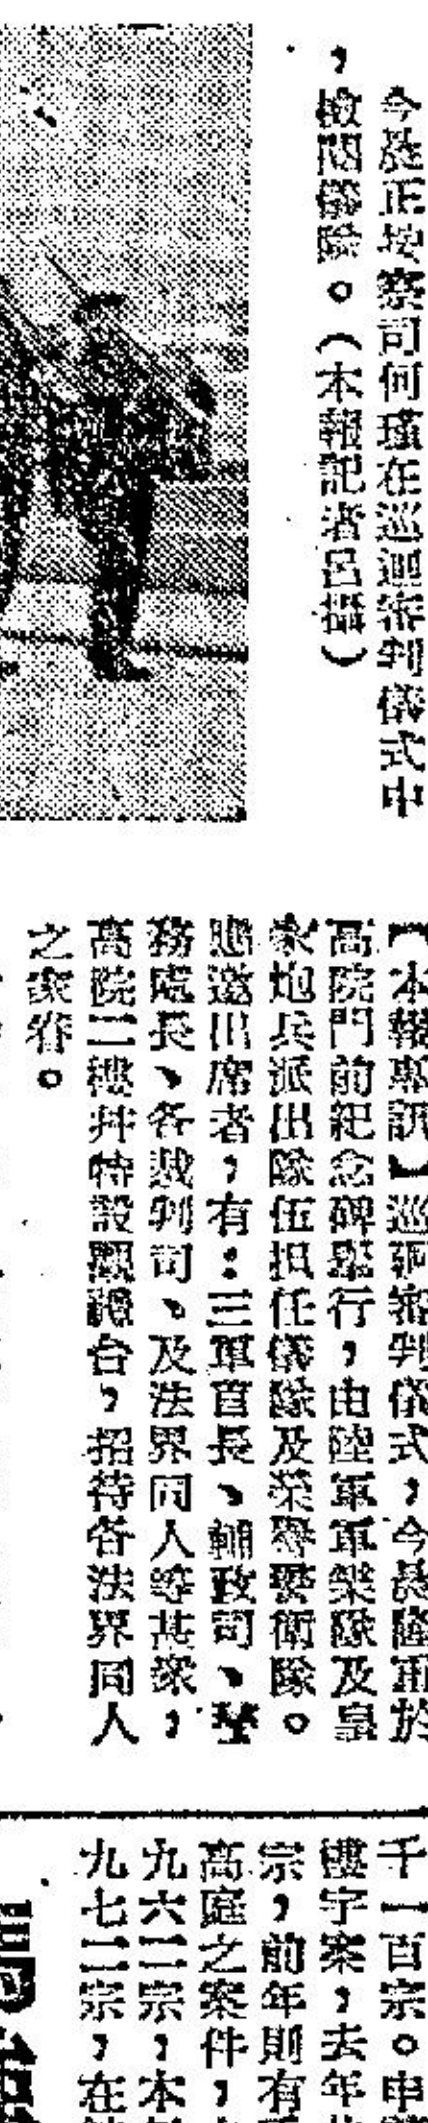 今晨正按察司何瑾在巡迴審判儀式中
，檢閱儀隊。（本報記者呂攝）
【本報專訊】巡迴審判儀式，今晨隆重於
高院門前紀念碑舉行，由陸軍軍樂隊及皇
家炮兵派出隊伍担任儀隊及榮譽警衛隊。
邀出席者，有：三軍首長、輔政司、警
務處長、各裁判司、及法界同人等甚衆，
高院二樓幷特設觀禮台，招待各法界同人
之家眷。
千一百宗。申
樓宇案，去年
宗，前年則有
高庭之案件，
九六二宗，本
九七二宗，在